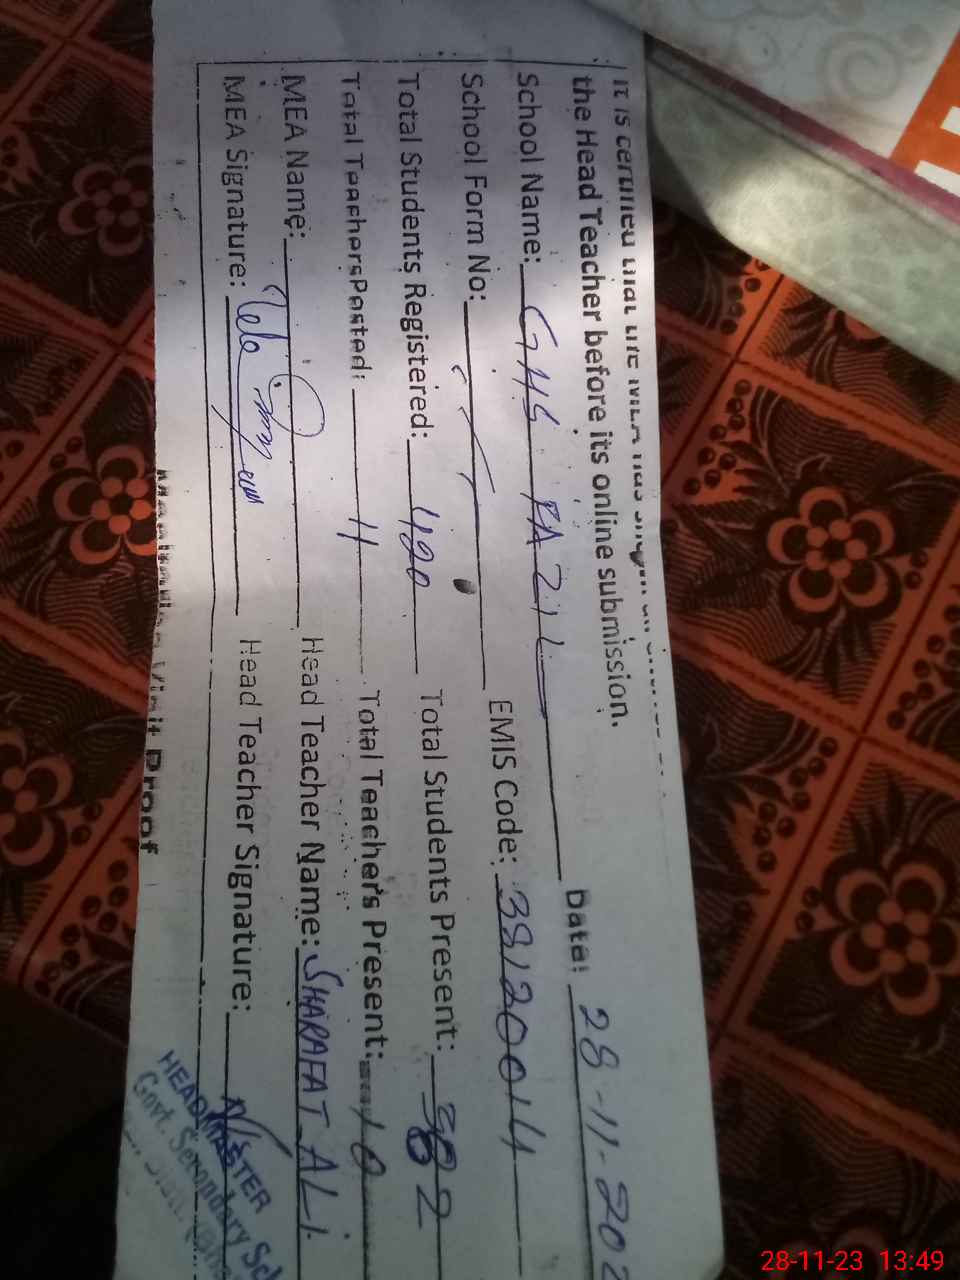 It is certified that the MEA has
the Head Teacher before its online submission.
Date: 28-11-202
School Name: GHS FAZIL
School Form No: EMIS Code: 38120014
Total Students Registered: 420 Total Students Present: 382
Total Teachers Posted: 11 Total Teachers Present: 10
MEA Name: Head Teacher Name: SHARAFAT ALI
MEA Signature: Head Teacher Signature:
HEADMASTER
Govt. Secondary Sc
Visit Proof
28-11-23 13:49